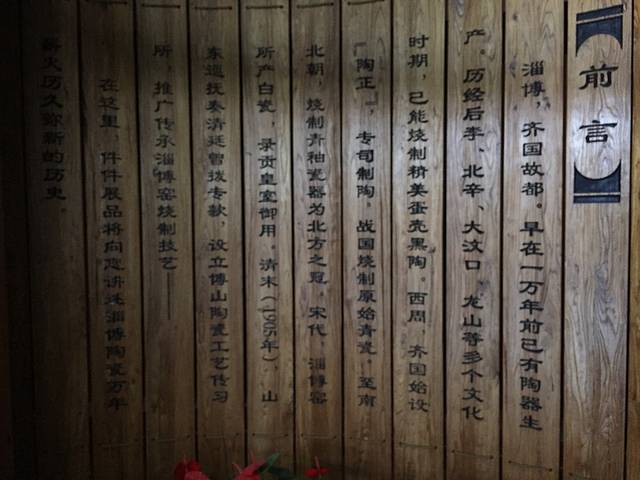 前言
淄博，齐国故都。早在一万年前已有陶器生
产。历经后李、北辛、大汶口、龙山等多个文化
时期，已能烧制精美蛋壳黑陶。西周，齐国始设
“陶正”，专司制陶。战国烧制原始青瓷。至南
北朝，烧制青釉瓷器为北方之冠。宋代，淄博窑
所产白瓷，录贡皇室御用。清末（1905年），山
东巡抚奏清廷曾拨专款，设立博山陶瓷工艺传习
所，推广传承淄博窑烧制技艺——
在这里，件件展品将向您讲述淄博陶瓷万年
薪火历久弥新的历史。